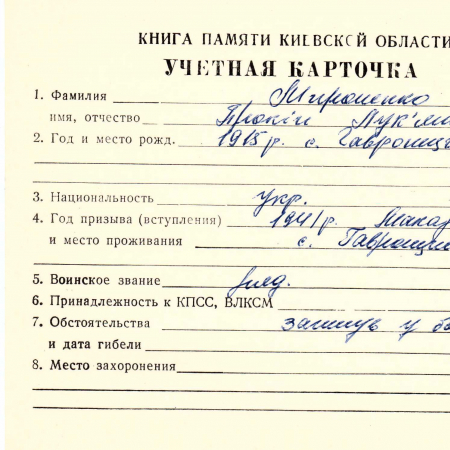 КНИГА ПАМЯТИ КИЕВСКОЙ ОБЛАСТИ
УЧЕТНАЯ КАРТОЧКА
1. Фамилия Мироненко
имя, отчество Прокіп Лук'ян
2. Год и место рожд. 1915 р. с. Гавронщ
3. Национальность укр.
4. Год призыва (вступления) 1941 р. Макар
и место проживания с. Гавронщи
5. Воинское звание
6. Принадлежность к КПСС, ВЛКСМ
7. Обстоятельства загинув у бо
и дата гибели
8. Место захоронения